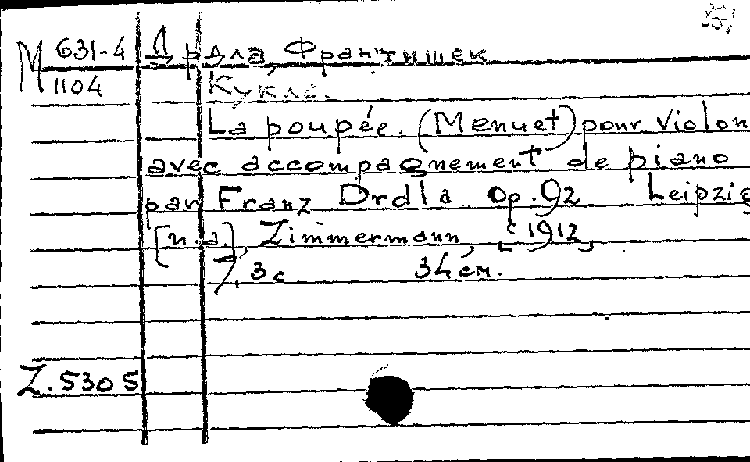 M 631-4 Дрдла, Франтишек
1104 Кукла.
La poupée. (Menuet) pour violon
avec accompagnement de piano
par Franz Drdla. Op. 92. Leipzig
[n. a.], Zimmermann, [c 1912]
7, 3 c 34 см.
Z. 5305